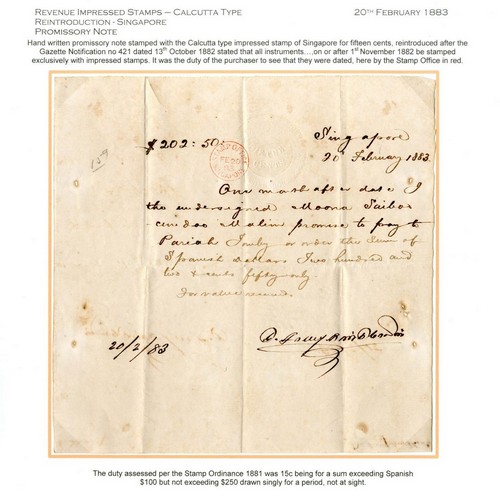 REVENUE IMPRESSED STAMPS – CALCUTTA TYPE
20TH FEBRUARY 1883
REINTRODUCTION - SINGAPORE
PROMISSORY NOTE
Hand written promissory note stamped with the Calcutta type impressed stamp of Singapore for fifteen cents, reintroduced after the
Gazette Notification no 421 dated 13th October 1882 stated that all instruments…,on or after 1st November 1882 be stamped
exclusively with impressed stamps. It was the duty of the purchaser to see that they were dated, here by the Stamp Office in red.
$202:50.
Singapore
20 February 1883.
159
One month after date I
the undersigned Moona Saiboo
Malim promise to pay to
Pariah or order the Sum of
Spanish Dollars Two hundred and
two & cents fifty only.
For value received.
20/2/83
The duty assessed per the Stamp Ordinance 1881 was 15c being for a sum exceeding Spanish
$100 but not exceeding $250 drawn singly for a period, not at sight.